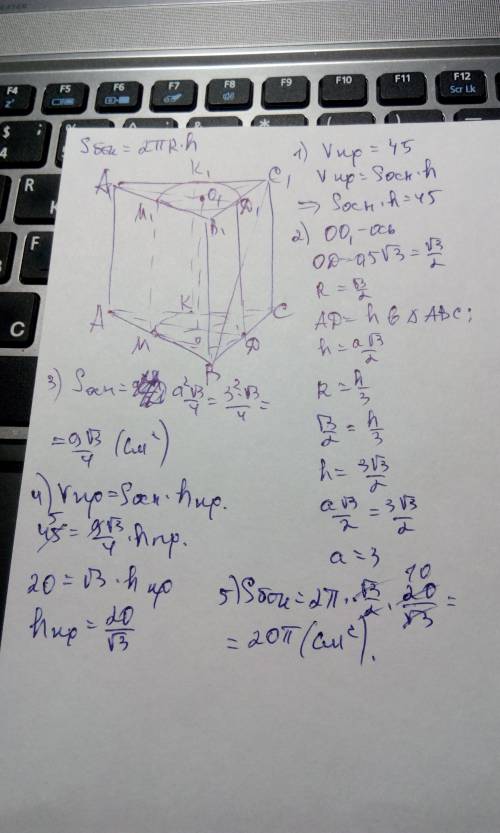 F4
F5
F6
F7
F8
F9
F10
F11
F12
Scr Lk
$
4
R
K
F
C
Sбок = 2πR·h
A
K₁
C₁
M₁
O₁
D₁
B₁
A
K
C
M
O
D
B
1) Vпр = 45
Vпр = Sосн·h
⇒ Sосн·h = 45
2) OO₁ - ось
OD = 0,5√3 = √3/2
R = √3/2
AD = h в ΔABC;
h = a√3/2
R = h/3
√3/2 = h/3
h = 3√3/2
a√3/2 = 3√3/2
a = 3
3) Sосн = a²√3/4 = 3²·√3/4 =
= 9√3/4 (см²)
4) Vпр = Sосн·hпр.
5
45 = 9√3/4 · hпр.
20 = √3 · hпр
hпр = 20/√3
5) Sбок = 2π · √3/2 · 20/√3 =
10
= 20π (см²).